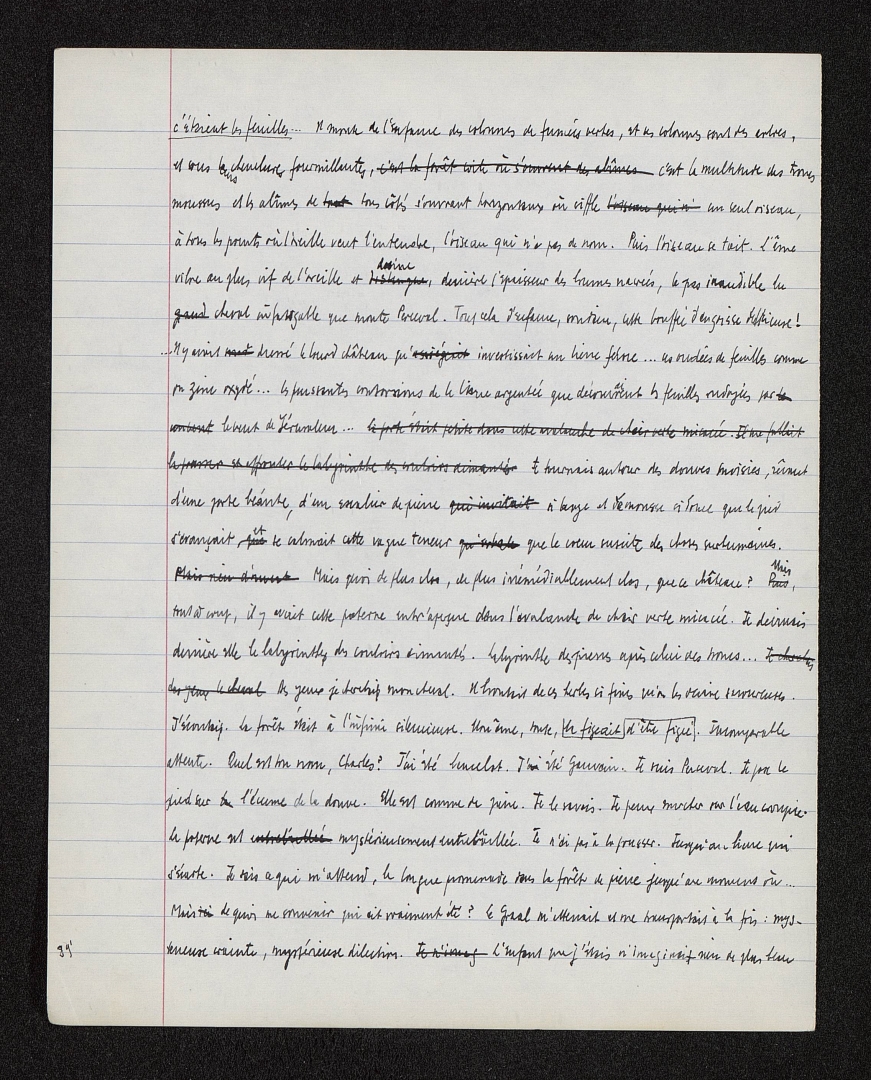 c'étaient les feuilles... Il monte de l'enfance des colonnes de fumées vertes, et ces colonnes sont des arbres,
et sous leurs chevelures fourmillantes, c'est la forêt où s'ouvrent des abîmes c'est la multitude des troncs
moussus et les abîmes de tout tous côtés s'ouvrant horizontaux où siffle l'oiseau qui n' un seul oiseau,
à tous les points où l'oreille veut l'entendre, l'oiseau qui n'a pas de nom. Puis l'oiseau se tait. L'âme
vibre au plus vif de l'oreille et distingue devine, derrière l'épaisseur des brumes nacrées, le pas inaudible du
grand cheval infatigable que monte Perceval. Tout cela d'enfance, soudain, cette bouffée d'angoisse délicieuse!
... Il y avait dressé le lourd château qu'assiégeait investissait un lierre féroce ... ces ondées de feuilles comme
en zinc oxydé... les puissantes contorsions de la liane argentée que découvraient les feuilles ondoyées par le
vent de Jérusalem ... la porte était petite dans cette avalanche de chair verte micacée. Il me fallait
la pousser et affronter le labyrinthe des couloirs aimantés Je tournais autour des douves moisies, rêvant
d'une porte béante, d'un escalier de pierre qui invitait si large et de mousse si douce que le pied
s'avançait, que et se calmait cette vague terreur que le cœur suscite des choses surhumaines.
Mais rien d'ouvert Mais quoi de plus clos, de plus irrémédiablement clos, que ce château? Puis Mais,
tout à coup, il y avait cette poterne entr'aperçue dans l'avalanche de chair verte micacée. Je devinais
derrière elle le labyrinthe des couloirs aimantés. Labyrinthe des pierres après celui des troncs... Je cherchais
des yeux le cheval Des yeux je cherchais mon cheval. Il broutait de ces herbes si fines qu'on les devine savoureuses.
J'écoutais. La forêt était à l'infini silencieuse. Mon âme, toute, se figeait d'être figée. Incomparable
attente. Quel est ton nom, Charles? J'ai été Lancelot. J'ai été Gauvain. Je suis Perceval. Je pose le
pied sur l'écume de la douve. Elle est comme de pierre. Je le savais. Je peux marcher sur l'eau croupie.
La poterne est entrebâillée mystérieusement entrebâillée. Je n'ai pas à la pousser. Jusqu'au lierre qui
s'écarte. Je sais ce qui m'attend, la longue promenade sous la forêt de pierre jusqu'au moment où ...
Mais de quoi me souvenir qui ait vraiment été? Le Graal m'attendait et me transportait à la fois : mys-
térieuse crainte, mystérieuse dilection. Je n'imag L'enfant que j'étais n'imaginait rien de plus beau
39'